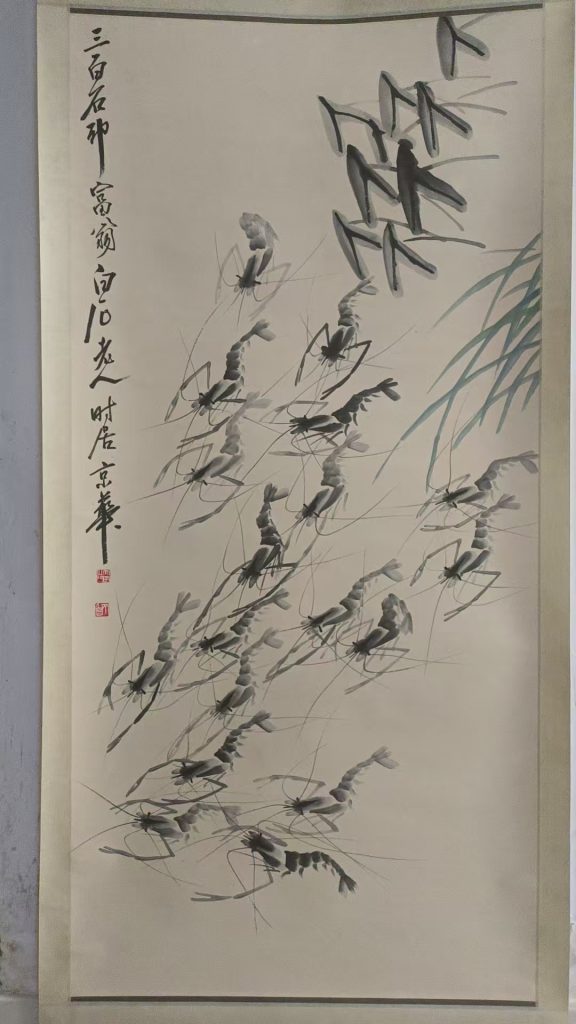 三百石印富翁白石老人时居京华